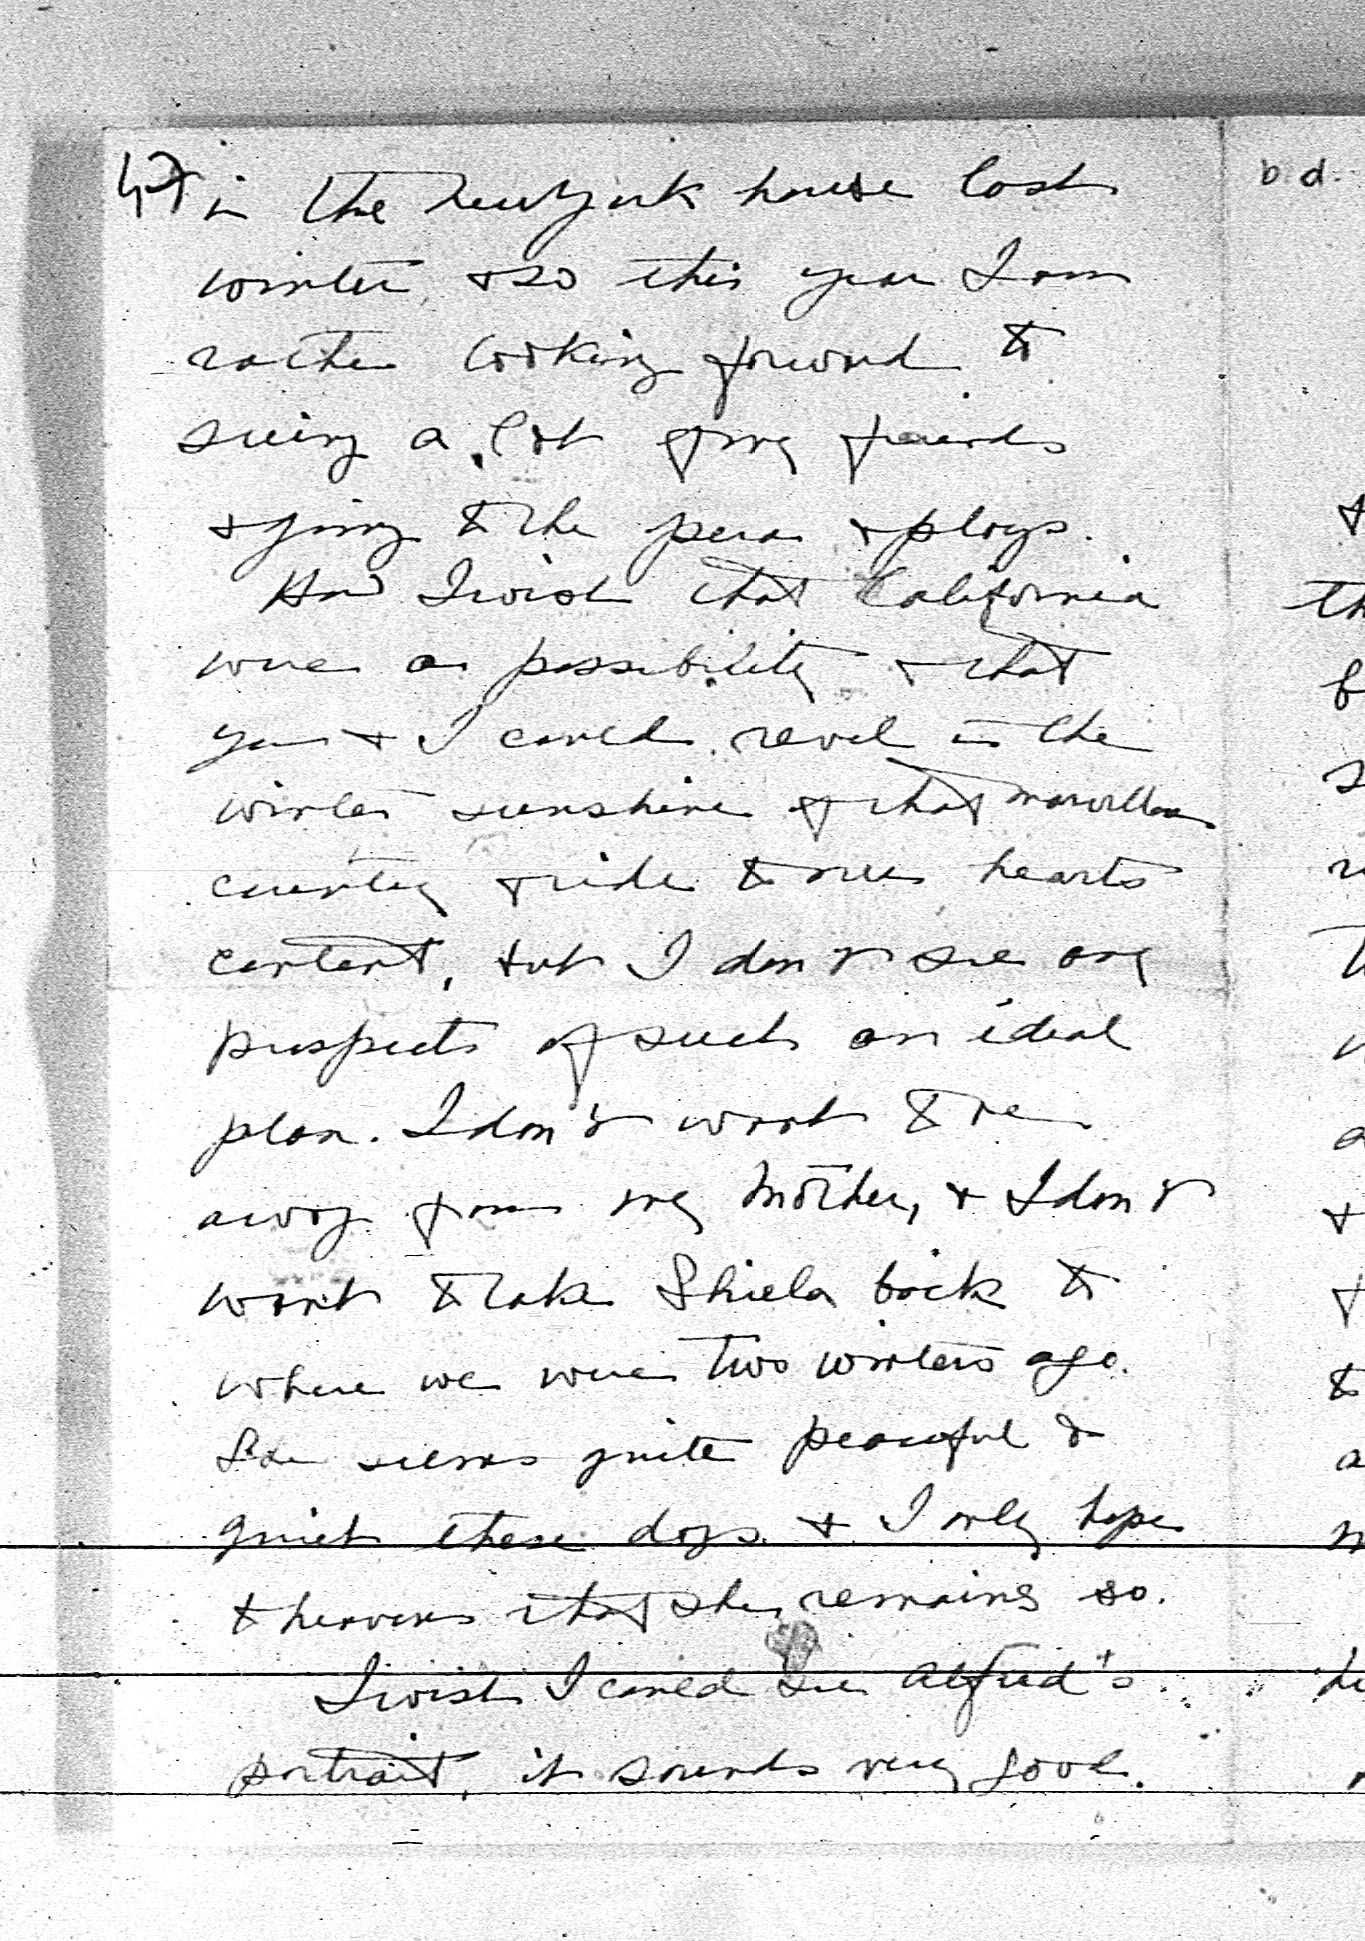 4) in the New York house last
winter, & so this year I am
rather looking forward to
seeing a lot of my friends
& going to the opera & plays.
How I wish that California
were a possibility & that
you & I could revel in the
winter sunshine of that marvellous
country & ride to our hearts
content, but I don't see any
prospects of such an ideal
plan. I don't want to be
away from my Mother, & I don't
want to take Shiela back to
where we were two winters ago.
She seems quite peaceful &
quiet these days & I only hope
to heavens that she remains so.
I wish I could see Alfred's
portrait, it sounds very good.
b d.
&
th
b
s
a
&
to
a